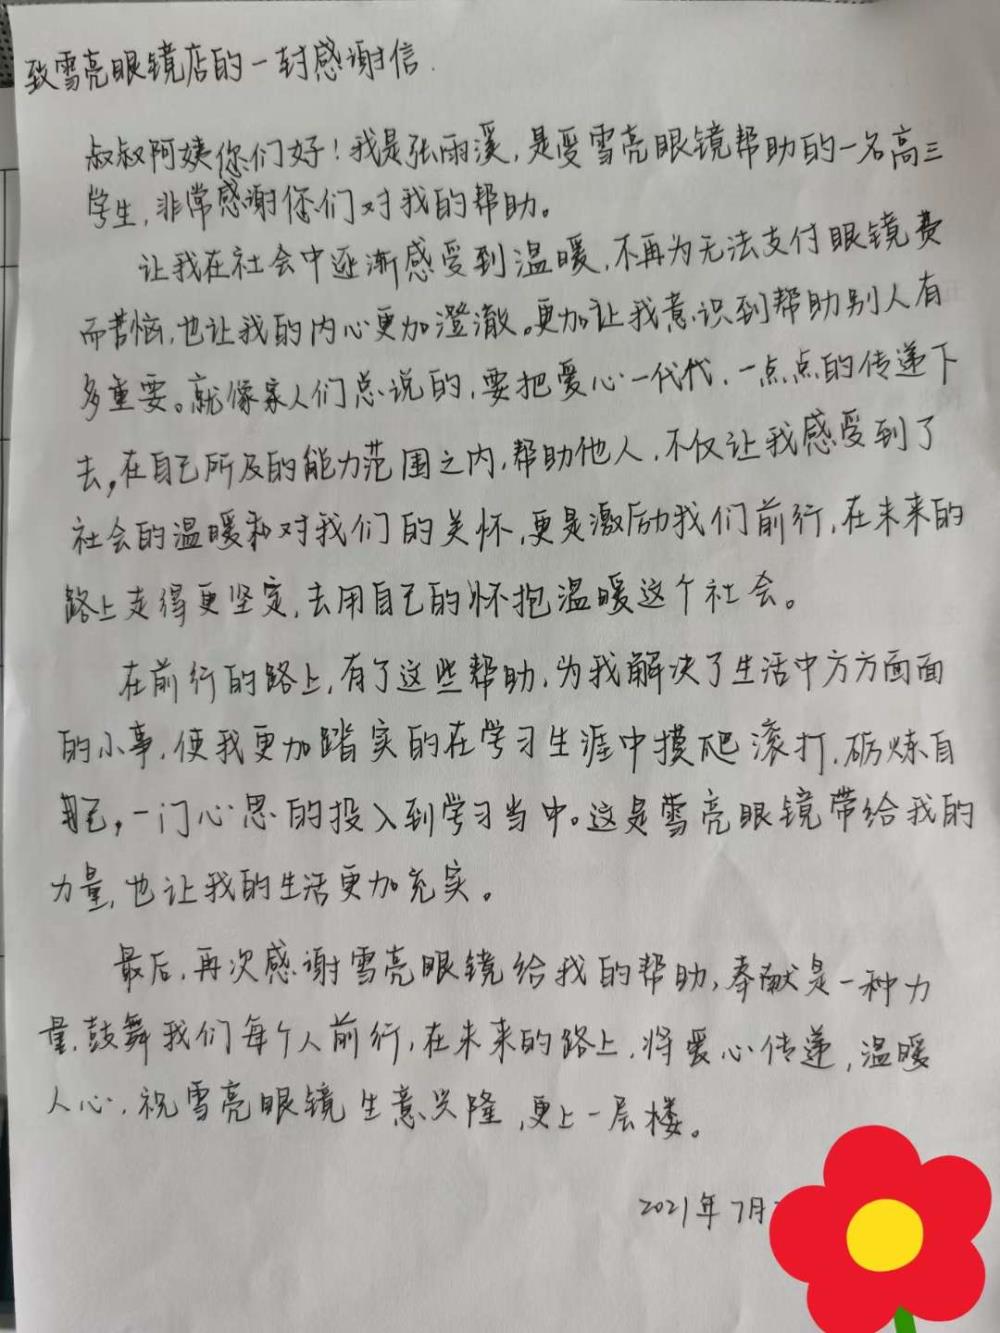 致雪亮眼镜店的一封感谢信.
叔叔阿姨你们好！我是张雨溪，是受雪亮眼镜帮助的一名高三
学生，非常感谢你们对我的帮助。
让我在社会中逐渐感受到温暖，不再为无法支付眼镜费
而苦恼，也让我的内心更加澄澈。更加让我意识到帮助别人有
多重要。就像家人们总说的，要把爱心一代代，一点点的传递下
去，在自己所及的能力范围之内，帮助他人，不仅让我感受到了
社会的温暖和对我们的关怀，更是激励我们前行，在未来的
路上走得更坚定，去用自己的怀抱温暖这个社会。
在前行的路上，有了这些帮助，为我解决了生活中方方面面
的小事，使我更加踏实的在学习生涯中摸爬滚打，砺炼自
己，一门心思的投入到学习当中。这是雪亮眼镜带给我的
力量，也让我的生活更加充实。
最后，再次感谢雪亮眼镜给我的帮助，奉献是一种力
量，鼓舞我们每个人前行，在未来的路上，将爱心传递，温暖
人心，祝雪亮眼镜生意兴隆，更上一层楼。
2021年7月